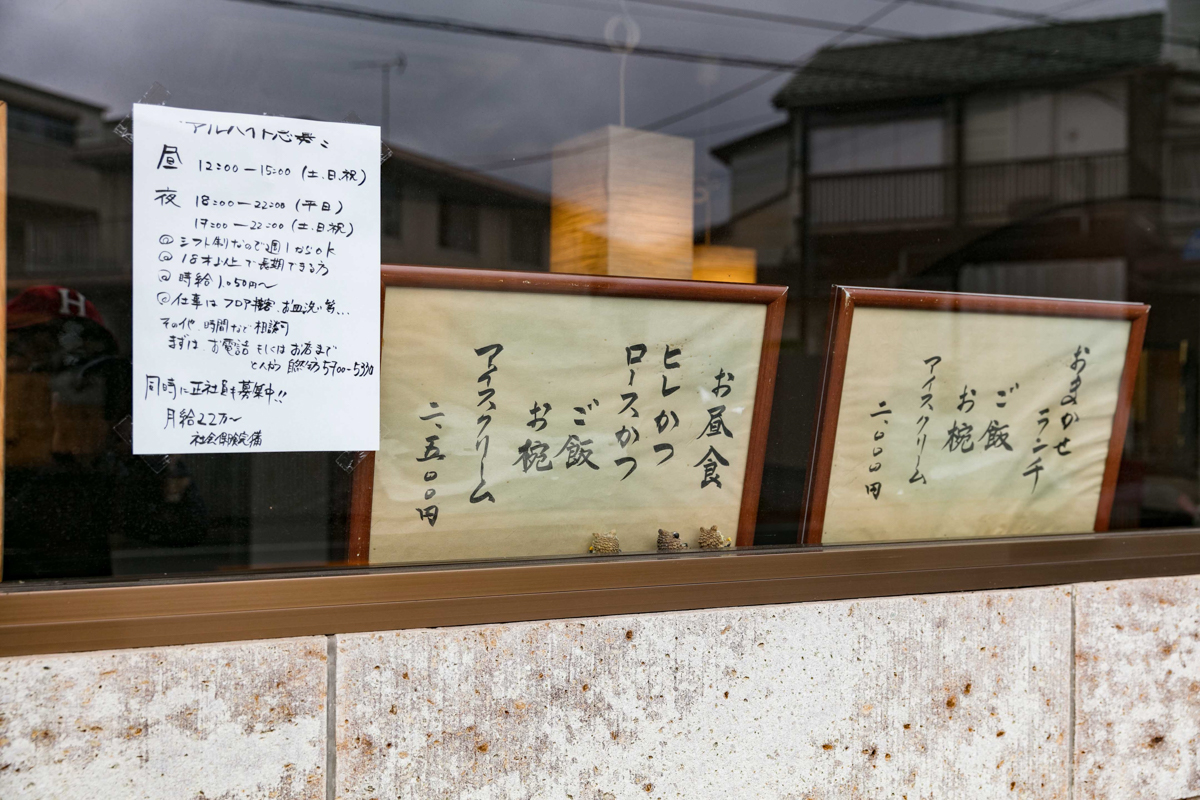 アルバイト募集
昼 12:00ー15:00 (土.日.祝)
夜 18:00ー22:00 (平日)
17:00ー22:00 (土.日.祝)
◎シフト制なので週1からok
◎18才以上で長期できる方
◎時給1,050円〜
◎仕事はフロア接客、お皿洗い等...
その他、時間など相談可
まずは、お電話もしくはお店まで
とんかつ 5700-5330
同時に正社員も募集中!!
月給22万〜
社会保険完備
お昼食
ヒレかつ
ロースかつ
ご飯
お椀
アイスクリーム
二、五〇〇円
おまかせ
ランチ
ご飯
お椀
アイスクリーム
二、〇〇〇円
H